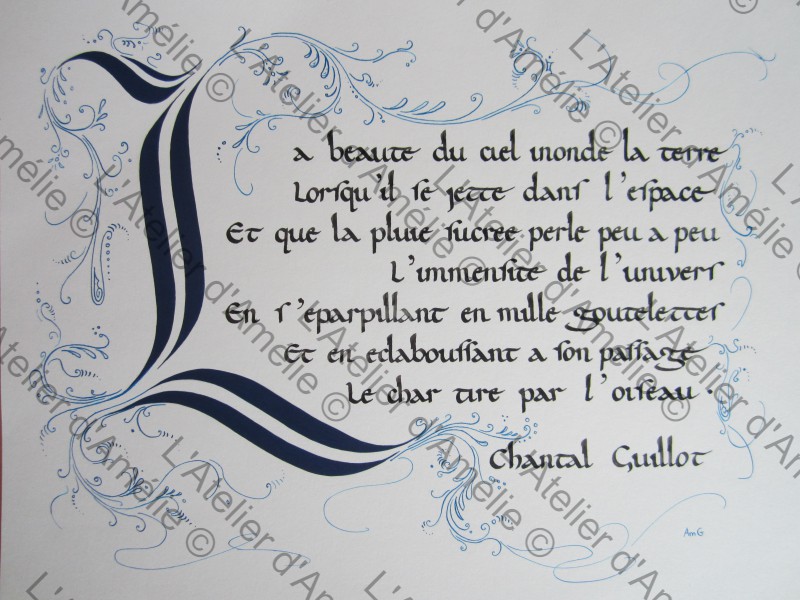 La beaute du ciel inonde la terre
Lorsqu'il se jette dans l'espace
Et que la pluie sucree perle peu a peu
L'immensite de l'univers
En s'eparpillant en mille goutelettes
Et en eclaboussant a son passage
Le char tire par l'oiseau.
Chantal Guillot
AmG
L'Atelier d'Amélie ©